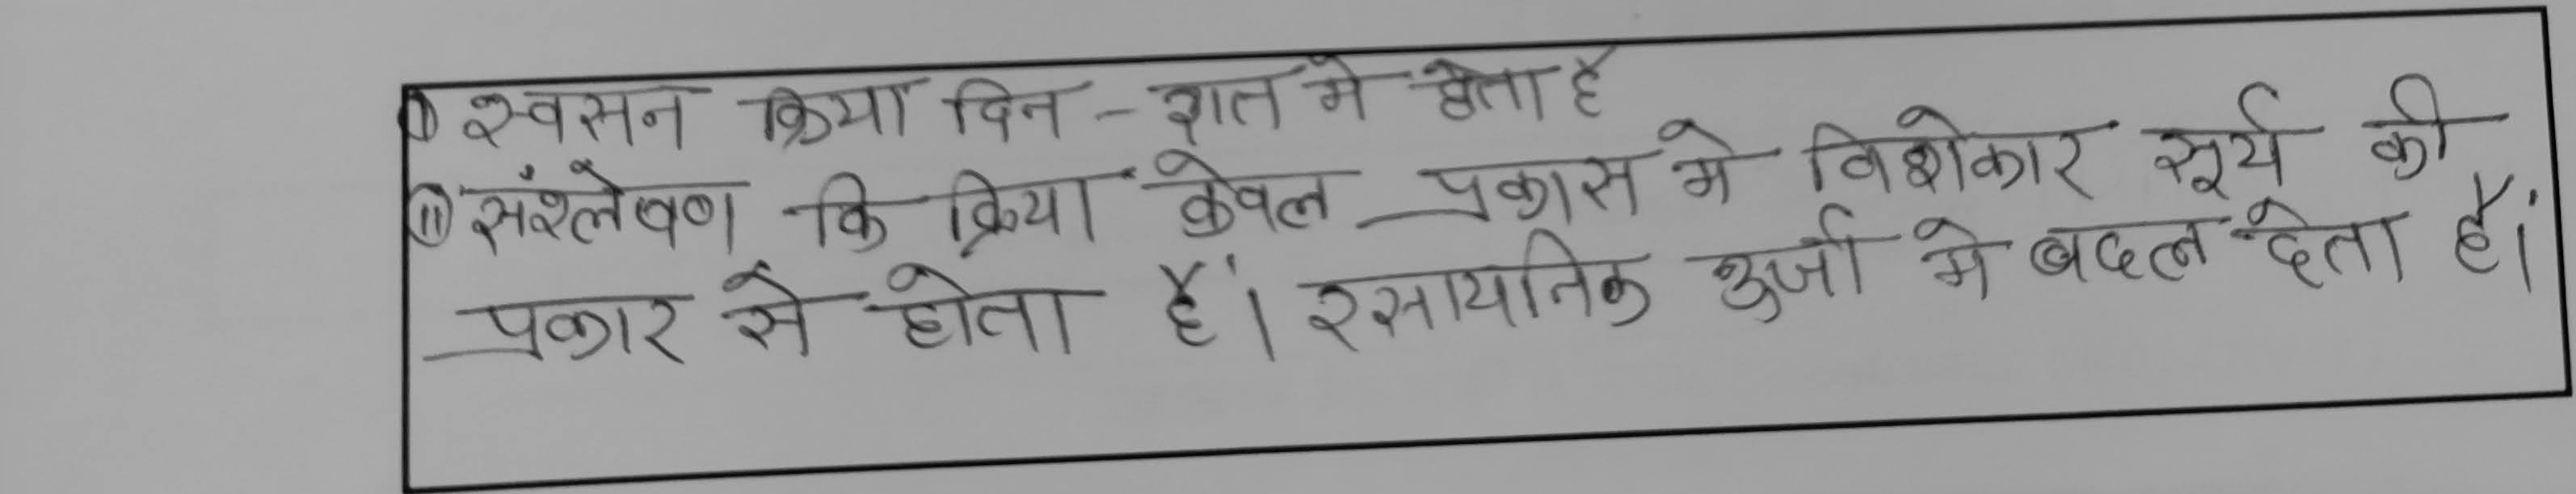 ① स्वसन क्रिया दिन - रात मे होता है
⑪ संश्लेषण कि क्रिया केवल प्रकास मे विशेकार सूर्य की
प्रकार से होता है। रसायनिक उुर्जा मे बदल देता है।